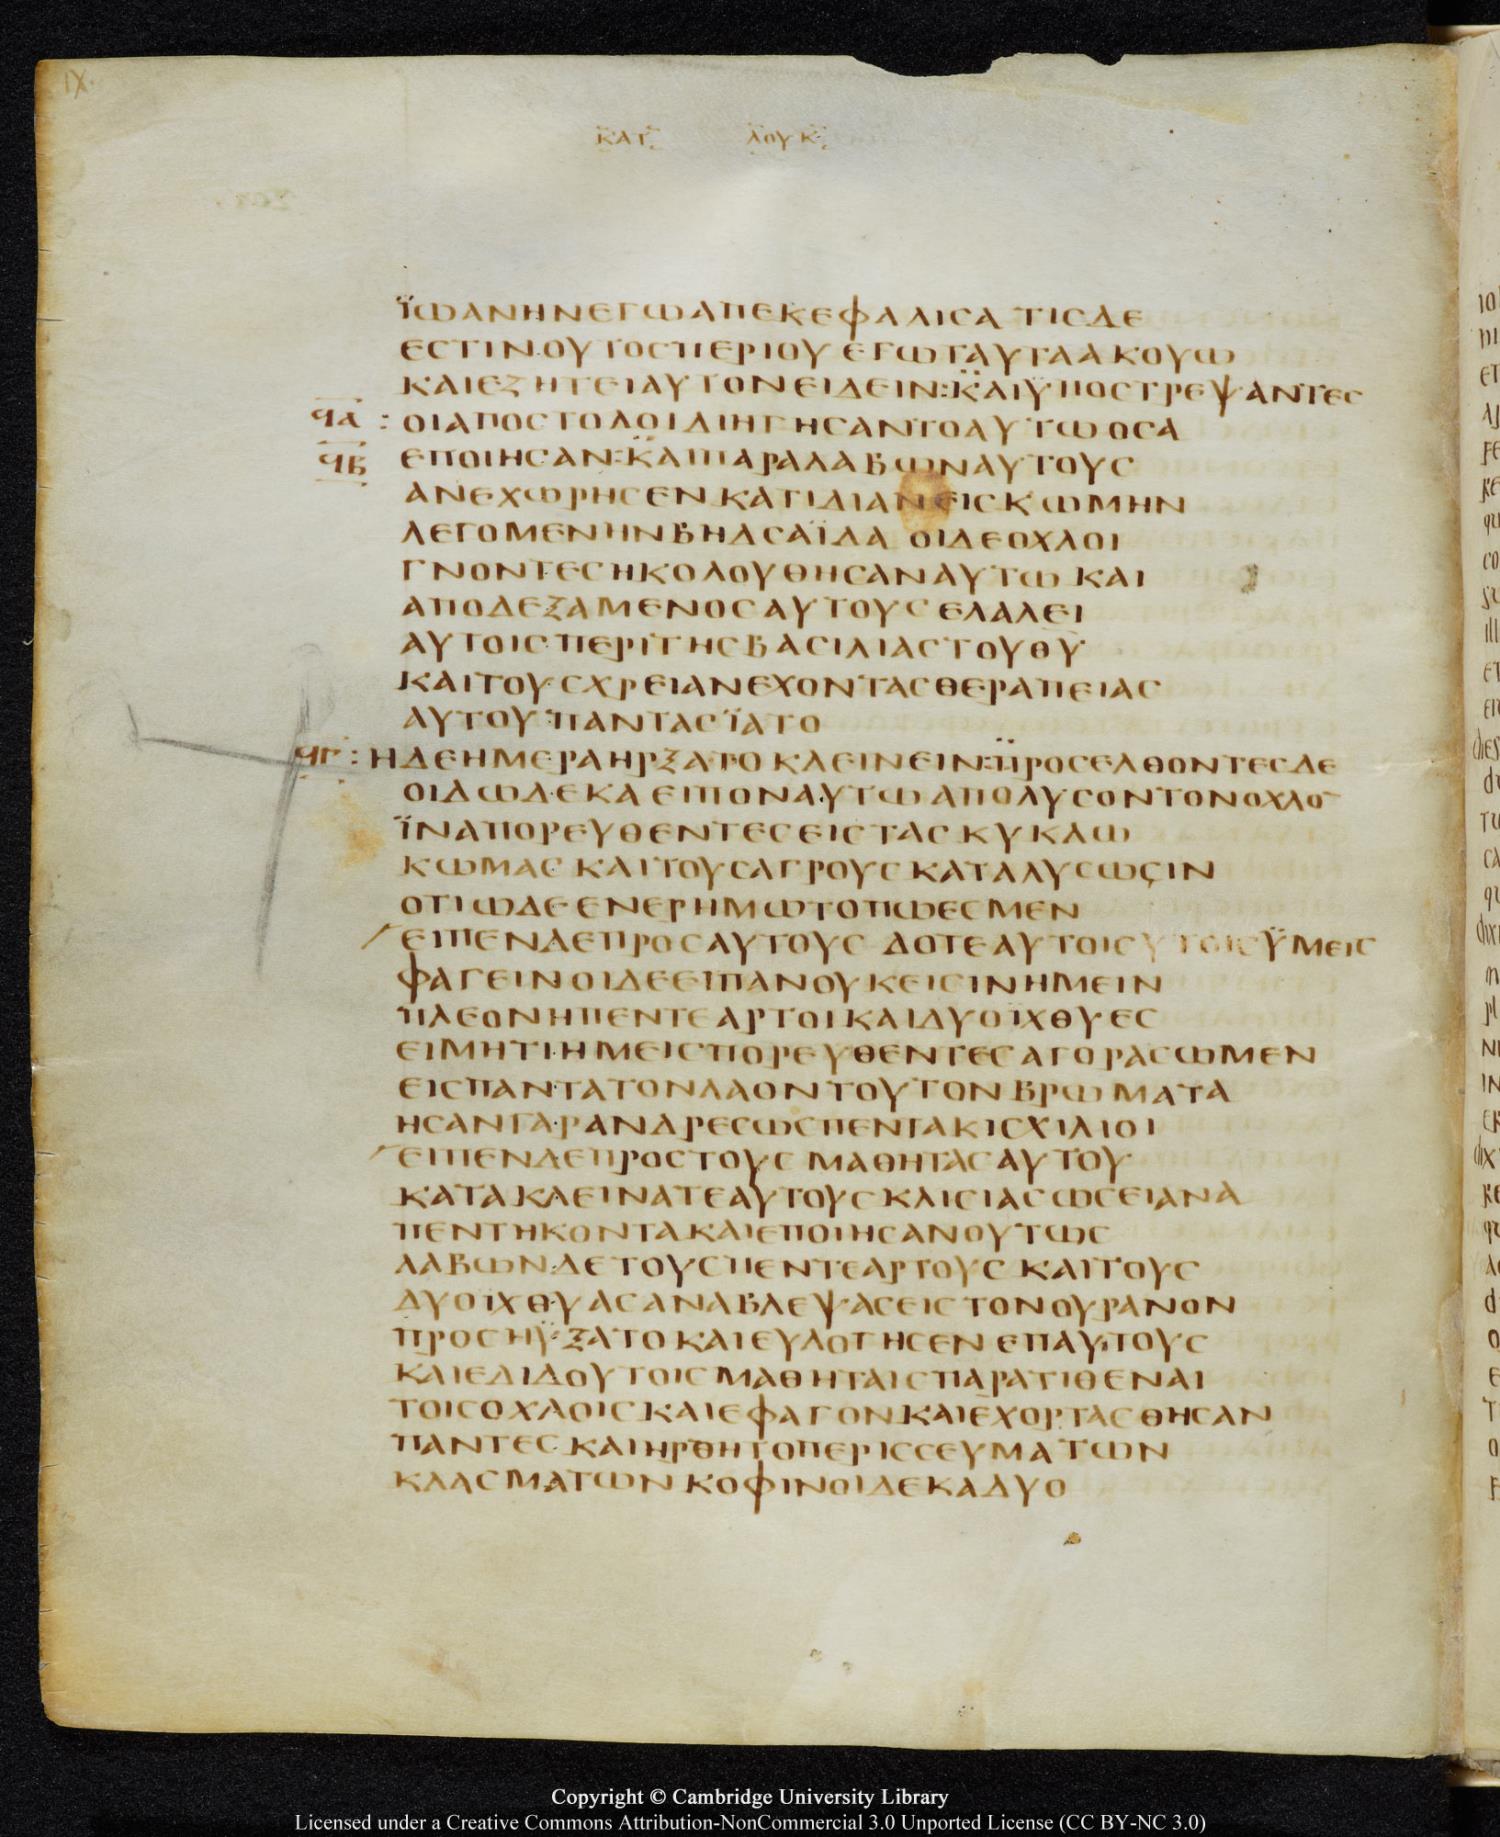 IX.
ΚΑΤ ΛΟΥΚ
ΪΩΑΝΗΝΕΓΩΑΠΕΚΕΦΑΛΙСΑ ΤΙСΔΕ
ΕСΤΙΝΟΥΤΟСΠΕΡΙΟΥ ΕΓΩΤΑΥΤΑΑΚΟΥΩ
ΚΑΙΕΖΗΤΕΙΑΥΤΟΝΕΙΔΕΙΝ:ΚΑΙΥΠΟСΤΡΕΨΑΝΤΕС
ϤΑ : ΟΙΑΠΟСΤΟΛΟΙΔΙΗΓΗСΑΝΤΟΑΥΤΩΟСΑ
ϤΒ ΕΠΟΙΗСΑΝ:ΚΑΙΠΑΡΑΛΑΒΩΝΑΥΤΟΥС
ΑΝΕΧΩΡΗСΕΝΚΑΤΙΔΙΑΝΕΙСΚΩΜΗΝ
ΛΕΓΟΜΕΝΗΝΒΗΔСΑΪΔΑ ΟΙΔΕΟΧΛΟΙ
ΓΝΟΝΤΕСΗΚΟΛΟΥΘΗСΑΝΑΥΤΩ ΚΑΙ
ΑΠΟΔΕΞΑΜΕΝΟСΑΥΤΟΥС ΕΛΑΛΕΙ
ΑΥΤΟΙСΠΕΡΙΤΗСΒΑСΙΛΙΑСΤΟΥΘΥ
ΚΑΙΤΟΥСΧΡΕΙΑΝΕΧΟΝΤΑСΘΕΡΑΠΕΙΑС
ΑΥΤΟΥΠΑΝΤΑСΪΑΤΟ
ϤΓ : ΗΔΕΗΜΕΡΑΗΡΞΑΤΟΚΛΕΙΝΕΙΝ:ΠΡΟСΕΛΘΟΝΤΕСΔΕ
ΟΙΔΩΔΕΚΑ ΕΙΠΟΝΑΥΤΩ ΑΠΟΛΥСΟΝΤΟΝΟΧΛΟ̅
ΪΝΑΠΟΡΕΥΘΕΝΤΕСΕΙСΤΑС ΚΥΚΛΩ
ΚΩΜΑС ΚΑΙΤΟΥСΑΓΡΟΥСΚΑΤΑΛΥСΩСΙΝ
ΟΤΙΩΔΕΕΝΕΡΗΜΩΤΟΠΩΕСΜΕΝ
ΕΙΠΕΝΔΕΠΡΟСΑΥΤΟΥС ΔΟΤΕΑΥΤΟΙСΥΤΟΙСΫΜΕΙС
ΦΑΓΕΙΝΟΙΔΕΕΙΠΑΝΟΥΚΕΙСΙΝΗΜΕΙΝ
ΠΛΕΟΝΗΠΕΝΤΕΑΡΤΟΙΚΑΙΔΥΟΪΧΘΥΕС
ΕΙΜΗΤΙΗΜΕΙСΠΟΡΕΥΘΕΝΤΕСΑΓΟΡΑСΩΜΕΝ
ΕΙСΠΑΝΤΑΤΟΝΛΑΟΝΤΟΥΤΟΝΒΡΩΜΑΤΑ
ΗСΑΝΓΑΡΑΝΔΡΕСΩСΠΕΝΤΑΚΙСΧΙΛΙΟΙ
ΕΙΠΕΝΔΕΠΡΟСΤΟΥС ΜΑΘΗΤΑСΑΥΤΟΥ
ΚΑΤΑΚΛΕΙΝΑΤΕΑΥΤΟΥСΚΛΙСΙΑСΩСΕΙΑΝΑ
ΠΕΝΤΗΚΟΝΤΑΚΑΙΕΠΟΙΗСΑΝΟΥΤΩС
ΛΑΒΩΝΔΕΤΟΥСΠΕΝΤΕΑΡΤΟΥС ΚΑΙΤΟΥС
ΔΥΟΪΧΘΥΑСΑΝΑΒΛΕΨΑСΕΙСΤΟΝΟΥΡΑΝΟΝ
ΠΡΟСΗΫΞΑΤΟΚΑΙΕΥΛΟΓΗСΕΝ ΕΠΑΥΤΟΥС
ΚΑΙΕΔΙΔΟΥΤΟΙСΜΑΘΗΤΑΙСΠΑΡΑΤΙΘΕΝΑΙ
ΤΟΙСΟΧΛΟΙСΚΑΙΕΦΑΓΟΝΚΑΙΕΧΟΡΤΑСΘΗСΑΝ
ΠΑΝΤΕСΚΑΙΗΡΘΗΤΟΠΕΡΙССΕΥΜΑΤΩΝ
ΚΛΑСΜΑΤΩΝΚΟΦΙΝΟΙΔΕΚΑΔΥΟ
Copyright © Cambridge University Library
Licensed under a Creative Commons Attribution-NonCommercial 3.0 Unported License (CC BY-NC 3.0)